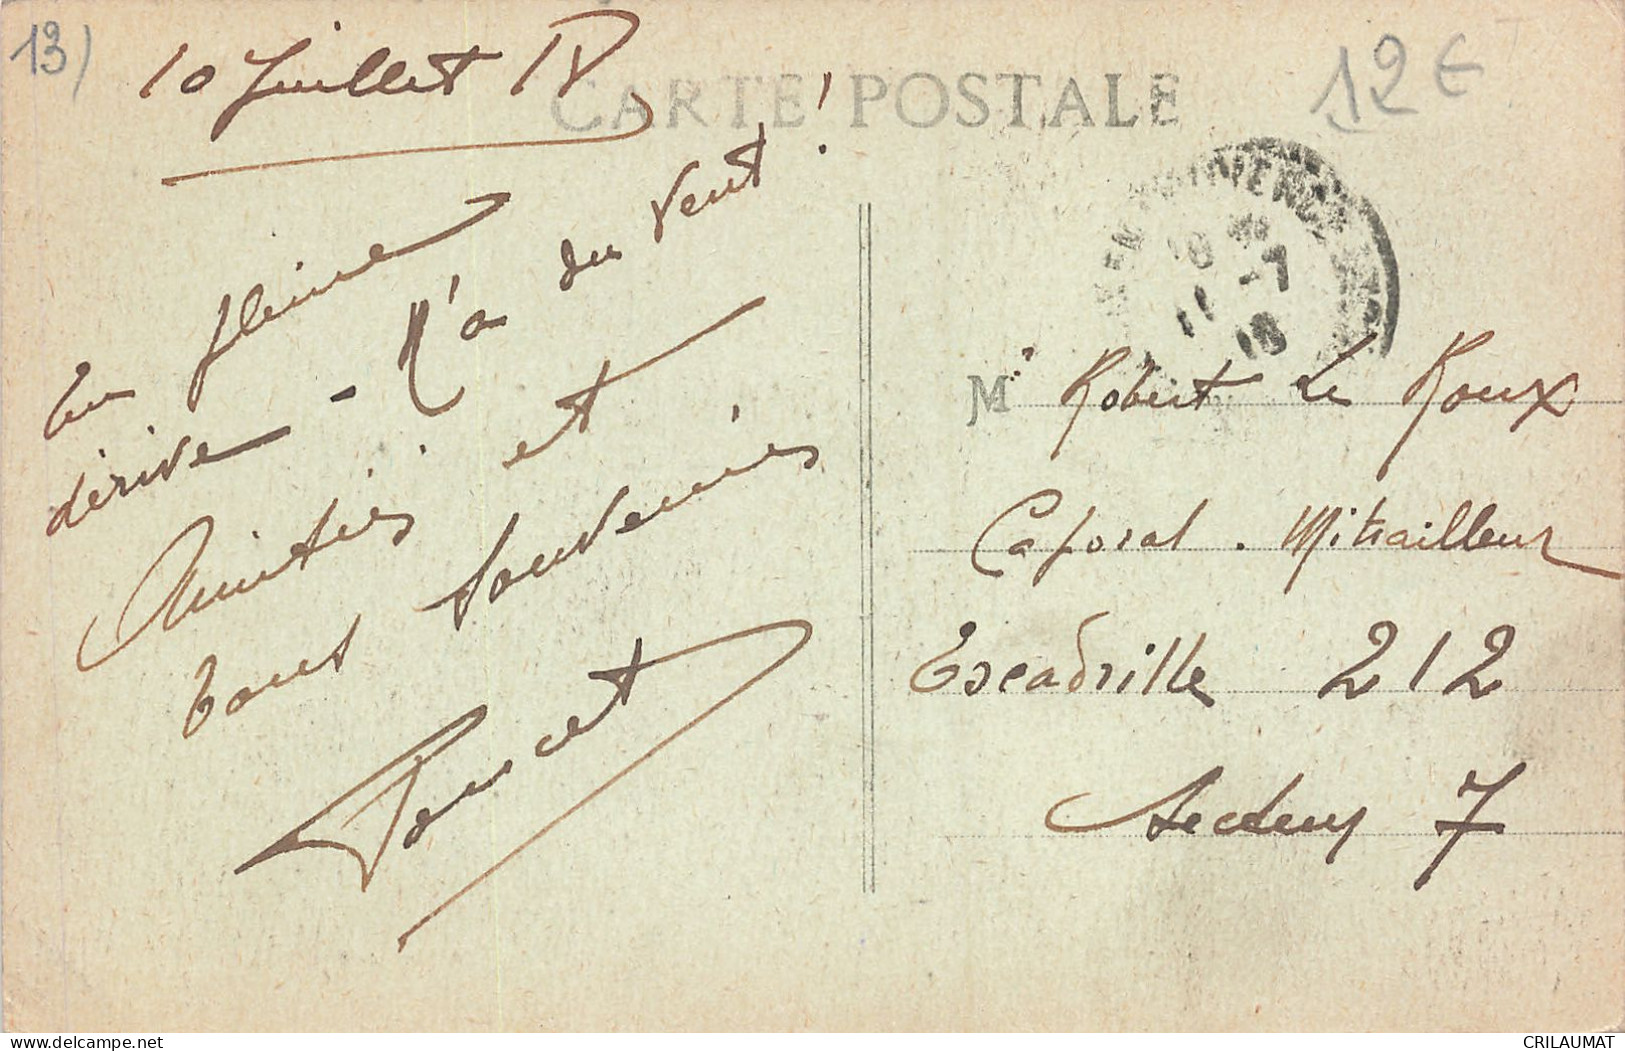 13)
10 Juillet 18
CARTE POSTALE
12€
En pleine
dérive - N'a du vent !
Amitiés et
bons souvenirs
Poncet
11 -7
18
Mr Robert Le Roux
Caporal. Mitrailleur
Escadrille 212
Secteur 7
delcampe.net
CRILAUMAT